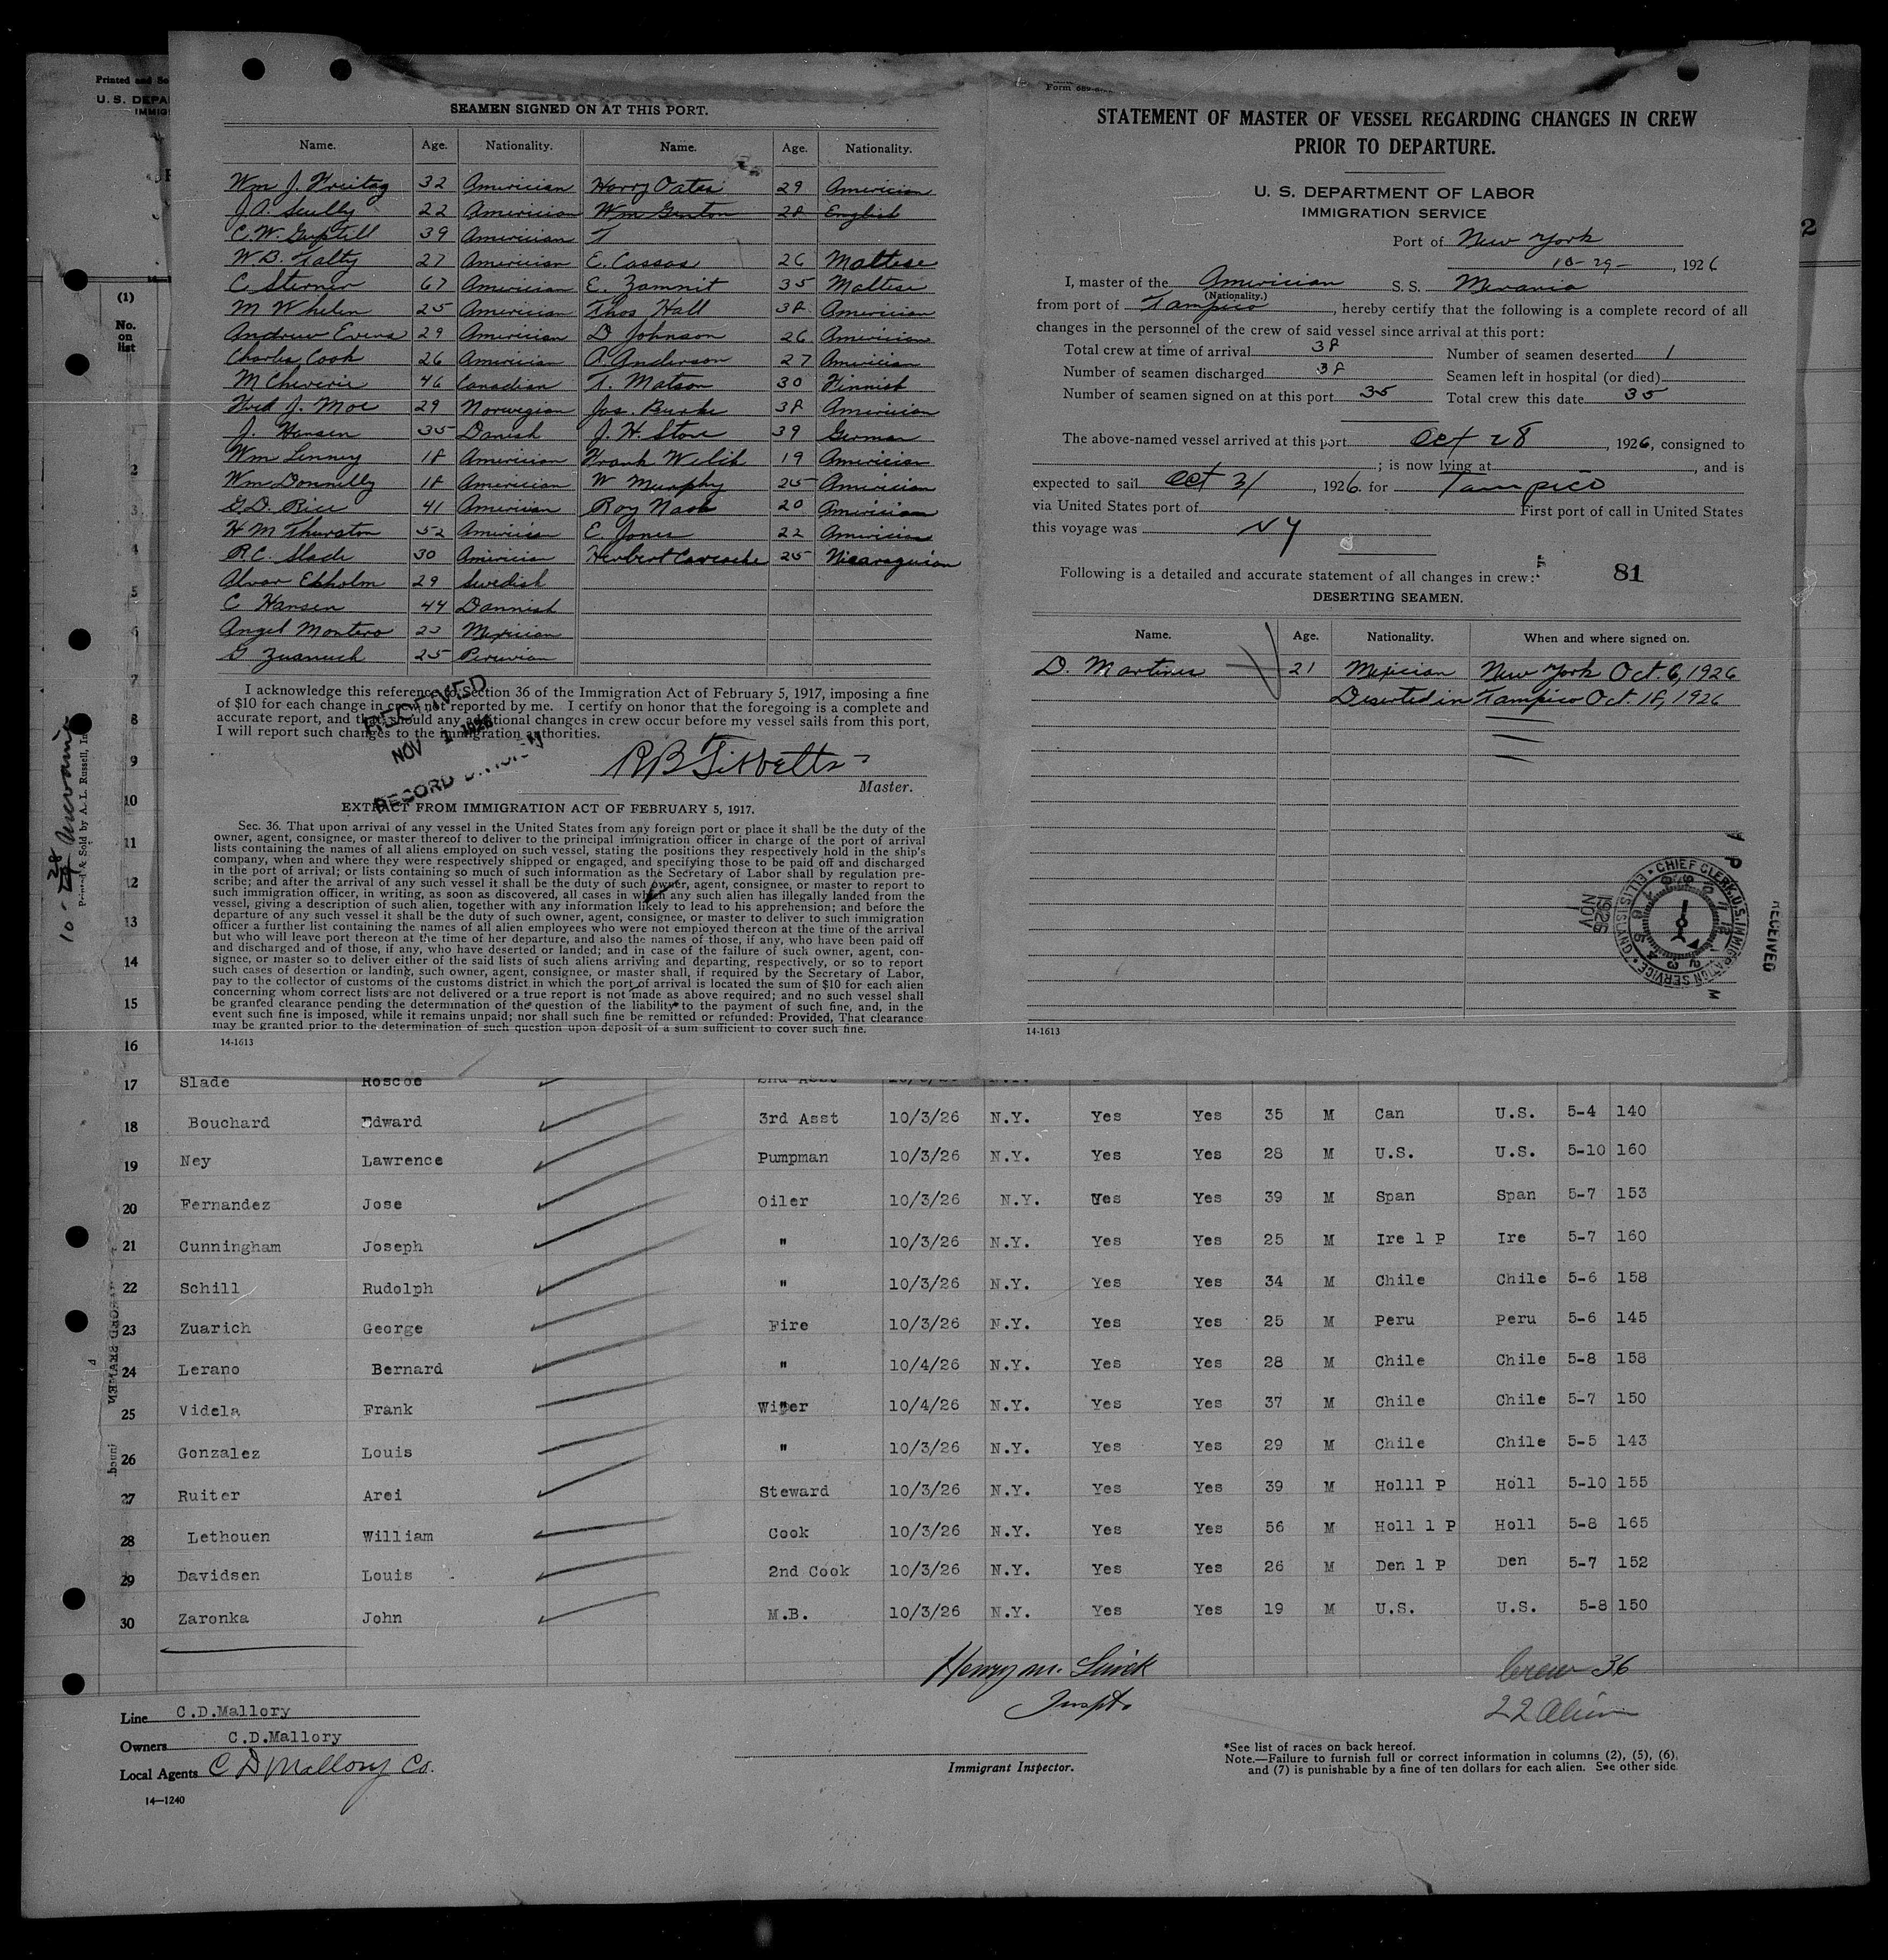 Printed and So
U. S. DEPA
IMMIG
SEAMEN SIGNED ON AT THIS PORT.
Name. Age. Nationality. Name. Age. Nationality.
Wm J. Freitag 32 Americian Harry Oates 29 Americian
J.A. Scully 22 Americian Wm Genton 28 English
C.W. Guptill 39 Americian T
W.B. Talty 27 Americian E. Cassas 26 Maltese
C Sterner 67 Americian E. Zammit 35 Maltese
M Whelen 25 Americian Thos Hall 38 Americian
Andrew Evens 29 Americian D Johnson 26 Americian
Charles Cook 26 Americian A Anderson 27 Americian
M Cheverie 46 Canadian T. Matson 30 Finnish
Fred J. Moe 29 Norwegian Jos. Burke 38 Americian
J. Hansen 35 Danish J. H. Stove 39 German
Wm Lenney 18 Americian Frank Welik 19 Americian
Wm Donnelly 18 Americian W Murphy 25 Americian
G.D. Rice 41 Americian Roy Nash 20 Americian
H M Thurston 52 Americian E. Jones 22 Americian
R.C. Slade 30 Americian Herbert 25 Nicaraguian
Alvar Ekholm 29 Swedish
C Hansen 44 Dannish
Angel Montero 23 Mexician
G 25 Peruvian
I acknowledge this reference to Section 36 of the Immigration Act of February 5, 1917, imposing a fine
of $10 for each change in crew not reported by me. I certify on honor that the foregoing is a complete and
accurate report, and that should any additional changes in crew occur before my vessel sails from this port,
I will report such changes to the immigration authorities.
RECEIVED
NOV 1 1926
RECORD DIVISION
R B Tibbetts
Master.
EXTRACT FROM IMMIGRATION ACT OF FEBRUARY 5, 1917.
Sec. 36. That upon arrival of any vessel in the United States from any foreign port or place it shall be the duty of the
owner, agent, consignee, or master thereof to deliver to the principal immigration officer in charge of the port of arrival
lists containing the names of all aliens employed on such vessel, stating the positions they respectively hold in the ship's
company, when and where they were respectively shipped or engaged, and specifying those to be paid off and discharged
in the port of arrival; or lists containing so much of such information as the Secretary of Labor shall by regulation pre-
scribe; and after the arrival of any such vessel it shall be the duty of such owner, agent, consignee, or master to report to
such immigration officer, in writing, as soon as discovered, all cases in which any such alien has illegally landed from the
vessel, giving a description of such alien, together with any information likely to lead to his apprehension; and before the
departure of any such vessel it shall be the duty of such owner, agent, consignee, or master to deliver to such immigration
officer a further list containing the names of all alien employees who were not employed thereon at the time of the arrival
but who will leave port thereon at the time of her departure, and also the names of those, if any, who have been paid off
and discharged and of those, if any, who have deserted or landed; and in case of the failure of such owner, agent, con-
signee, or master so to deliver either of the said lists of such aliens arriving and departing, respectively, or so to report
such cases of desertion or landing, such owner, agent, consignee, or master shall, if required by the Secretary of Labor,
pay to the collector of customs of the customs district in which the port of arrival is located the sum of $10 for each alien
concerning whom correct lists are not delivered or a true report is not made as above required; and no such vessel shall
be granted clearance pending the determination of the question of the liability to the payment of such fine, and, in the
event such fine is imposed, while it remains unpaid; nor shall such fine be remitted or refunded: Provided, That clearance
may be granted prior to the determination of such question upon deposit of a sum sufficient to cover such fine.
14-1613
STATEMENT OF MASTER OF VESSEL REGARDING CHANGES IN CREW
PRIOR TO DEPARTURE.
U. S. DEPARTMENT OF LABOR
IMMIGRATION SERVICE
Port of New York
10-29-, 1926
I, master of the Americian S. S. Mevania
(Nationality.)
from port of Tampico, hereby certify that the following is a complete record of all
changes in the personnel of the crew of said vessel since arrival at this port:
Total crew at time of arrival 38 Number of seamen deserted 1
Number of seamen discharged 38 Seamen left in hospital (or died)
Number of seamen signed on at this port 35 Total crew this date 35
The above-named vessel arrived at this port Oct 28, 1926, consigned to
; is now lying at , and is
expected to sail Oct 31, 1926. for Tampico
via United States port of First port of call in United States
this voyage was NY
Following is a detailed and accurate statement of all changes in crew: 81
DESERTING SEAMEN.
Name. Age. Nationality. When and where signed on.
D. Martines 21 Mexician New York Oct. 6, 1926
Deserted in Tampico Oct. 18, 1926
CHIEF CLERK, U.S. IMMIGRATION SERVICE ELLIS ISLAND
1926 NOV
RECEIVED
14-1613
2
(1)
No.
on
list
2
3
4
5
6
7
8
9
10
11
12
13
14
15
16
10-28 Mevania
Printed & Sold by A. L. Russell, In
17 Slade Roscoe 2nd Asst
18 Bouchard Edward 3rd Asst 10/3/26 N.Y. Yes Yes 35 M Can U.S. 5-4 140
19 Ney Lawrence Pumpman 10/3/26 N.Y. Yes Yes 28 M U.S. U.S. 5-10 160
20 Fernandez Jose Oiler 10/3/26 N.Y. Yes Yes 39 M Span Span 5-7 153
21 Cunningham Joseph " 10/3/26 N.Y. Yes Yes 25 M Ire l P Ire 5-7 160
22 Schill Rudolph " 10/3/26 N.Y. Yes Yes 34 M Chile Chile 5-6 158
23 Zuarich George Fire 10/3/26 N.Y. Yes Yes 25 M Peru Peru 5-6 145
24 Lerano Bernard " 10/4/26 N.Y. Yes Yes 28 M Chile Chile 5-8 158
25 Videla Frank Wiper 10/4/26 N.Y. Yes Yes 37 M Chile Chile 5-7 150
26 Gonzalez Louis " 10/3/26 N.Y. Yes Yes 29 M Chile Chile 5-5 143
27 Ruiter Arei Steward 10/3/26 N.Y. Yes Yes 39 M Holll P Holl 5-10 155
28 Lethouen William Cook 10/3/26 N.Y. Yes Yes 56 M Holl l P Holl 5-8 165
29 Davidsen Louis 2nd Cook 10/3/26 N.Y. Yes Yes 26 M Den l P Den 5-7 152
30 Zaronka John M.B. 10/3/26 N.Y. Yes Yes 19 M U.S. U.S. 5-8 150
Henry M.
Inspt.
Crew 36
22 Alien
Line C.D.Mallory
Owners C.D.Mallory
Local Agents C D Mallory Co.
14—1240
Immigrant Inspector.
*See list of races on back hereof.
Note.—Failure to furnish full or correct information in columns (2), (5), (6),
and (7) is punishable by a fine of ten dollars for each alien. See other side.